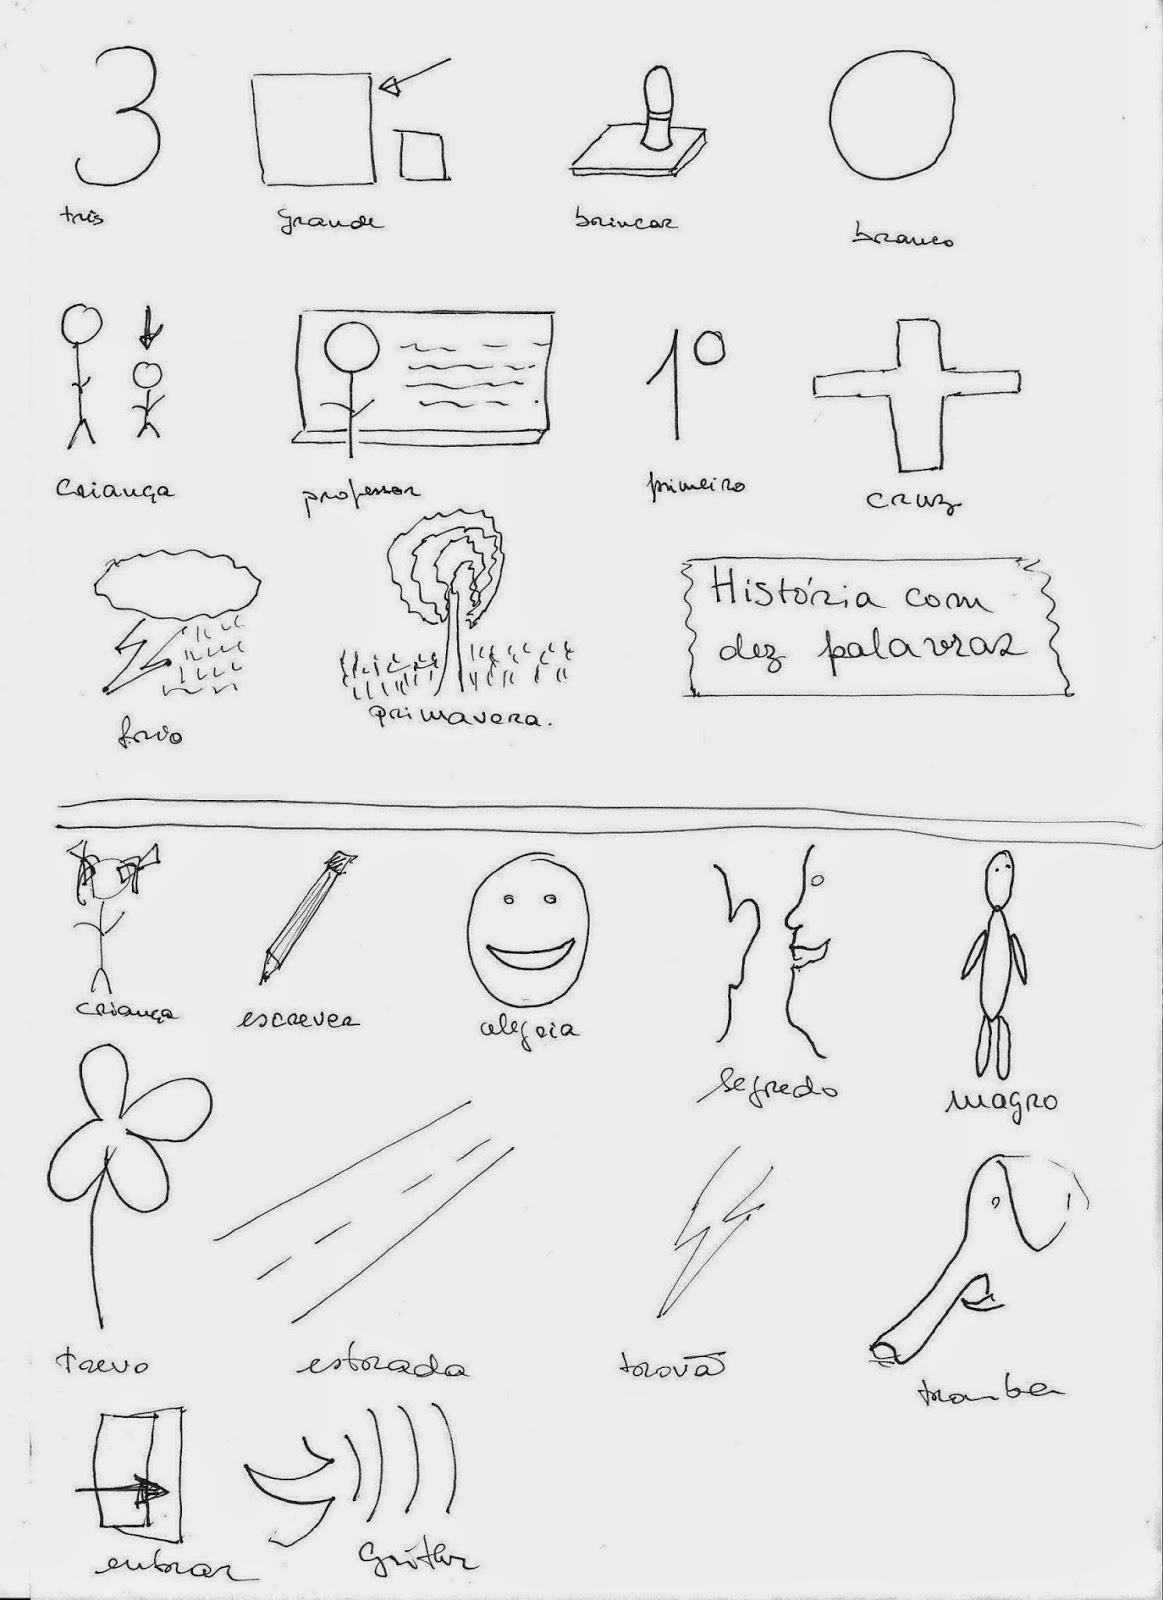 3
três
grande
brincar
branco
1º
criança
professor
primeiro
cruz
História com
dez palavras
frio
primavera.
criança
escrever
alegria
segredo
magro
trevo
estrada
trovã
tromba
entrar
Gritar